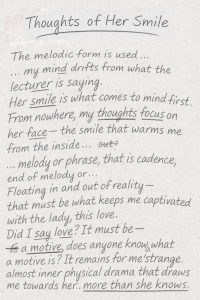 Thoughts of Her Smile
The melodic form is used...
...my mind drifts from what the
lecturer is saying.
Her smile is what comes to mind first.
From nowhere, my thoughts focus on
her face— the smile that warms me
from the inside... out?
...melody or phrase, that is cadence,
end of melody or...
Floating in and out of reality—
that must be what keeps me captivated
with the lady, this love.
Did I say love? It must be—
a motive, does anyone know what
a motive is? It remains for me strange.
almost inner physical drama that draws
me towards her.. more than she knows.